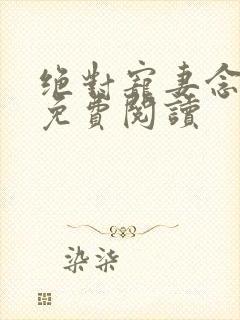 绝對寵妻念
免費閱讀
染柒